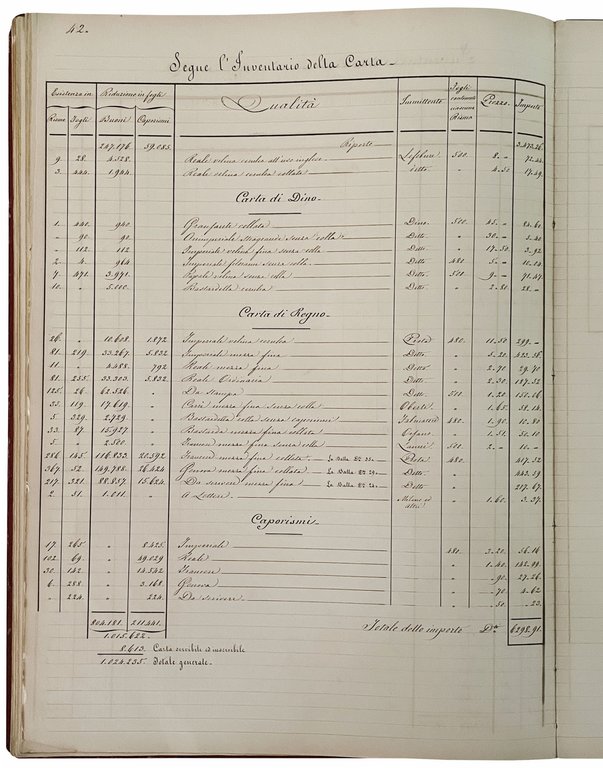 42.
Segue l'Inventario della Carta
Esistenza in Riduzione in fogli Qualità Immittente Fogli contenuti in ciascuna Risma Prezzo Importo
Risme Fogli Buoni Caporismi
247.176. 59.085. Riporto 3.473.26
9. 28. 4.528. Reale velina cerulea all'uso inglese Lefebvre 500. 8. - 72.44
3. 444. 1.944. Reale velina cerulea collata detto " 4.50 17.49
Carta di Dino
1. 440. 940. collata Dino 500. 45. - 84.60
" 90. 90. senza colla Ditto " 30. - 5.40
" 112. 112. Imperiale velina fina senza colla Ditto " 17.50 3.92
2. 4. 964. Imperiale senza colla Ditto 480 5. - 10.04
7. 471. 3.971. velina senza colla Ditto 500. 9. - 71.47
10. " 5.000. Bastardella cerulea Ditto " 2.80 28. -
Carta di Regno
26. " 10.608. 1.872 Imperiale velina cerulea 480. 11.50 299. -
81. 219. 33.267. 5.832 Imperiale mezza fina Ditto " 5.20
11. " 4.488. 792 Reale mezza fina Ditto " 2.70 29.70
81. 255. 33.303. 5.832 Reale Ordinaria Ditto " 2.30 187.52
125. 26. 62.526. Da Stampa Ditto 500. 1.20 150.06
35. 119. 17.619. mezza fina senza colla " 1.65 58.14
5. 329. 2.729. Bastardella colla senza caporismi 480. 1.90 10.80
33. 87. 15.927. Bastarda mezza fina collata " 1.51 50.10
5. " 2.500. Francese mezza fina senza colla 500. 2. - 10. -
286. 145. 116.833. 20.592 Francese mezza fina collata La Balla 480. 417.52
367. 52. 149.788. 26.424 Genova mezza fina collata La Balla Ditto 443.59
217. 321. 88.857. 15.624. Da Scrivere mezza fina La Balla Ditto 217.67
2. 51. 1.011. A Lettere Milano ed altri " 1.60 3.37
Caporismi
17. 265. " 8.425. Imperiali 480. 3.20 56.16
102. 69. " 49.029 Reale " 1.40 142.99
30. 142. " 14.542 Francese " -.90 27.26
6. 288. " 3.168. Genova " -.70 4.62
" 224. " 224. Da Scrivere " .50 -.23
804.181. 211.441. Totale dello importo D.ti 6298.91
1.015.622.
8.613. Carta servibile ed inservibile
1.024.235. Totale generale.